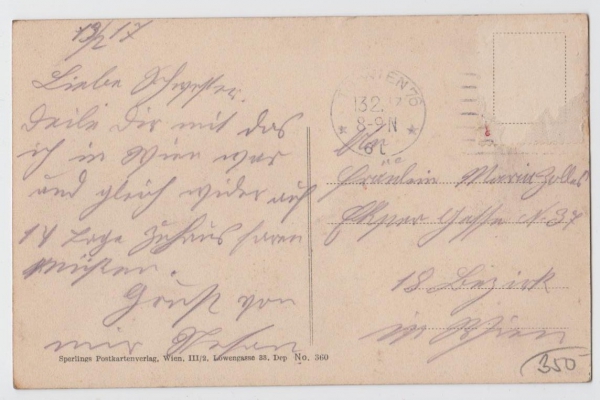 13/2 17
Liebe Schwester.
Teile Dir mit das
ich in Wien war
und gleich wider auf
14 Tage Zuhaus faren
müßen.
Gruß von
mir
WIEN 76
13.2.17
8-9N
6L
An
Fräulein Maria Zolles
Gasse N. 37
18 Bezirk
in Wien
Sperlings Postkartenverlag, Wien, III/2, Löwengasse 33, Dep No. 360
350